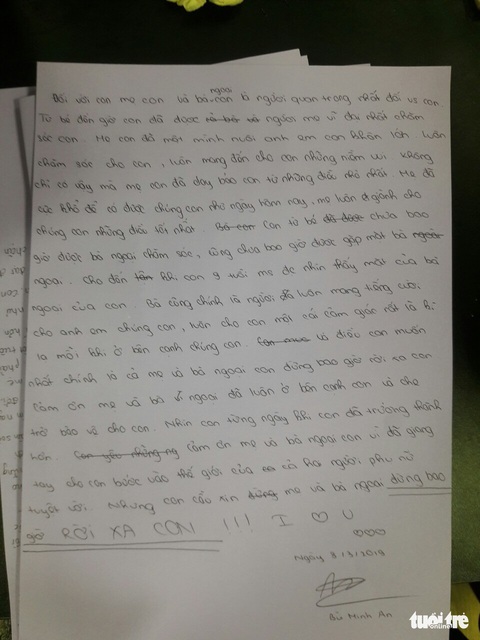 ngoại
Đối với con mẹ con và bà con là người quan trọng nhất đối vs con.
Từ bé đến giờ con đã được người mẹ vĩ đại nhất chăm
sóc con. Mẹ con đã một mình nuôi anh em con khôn lớn. Luôn
chăm sóc cho con, luôn mang đến cho con những niềm vui. Không
chỉ có vậy mà mẹ con đã dạy bảo con từ những điều nhỏ nhất. Mẹ đã
cực khổ để có được chúng con như ngày hôm nay, mẹ luôn dành cho
chúng con những điều tốt nhất. Bà con Con từ bé đã được chưa bao
giờ được bà ngoại chăm sóc, cũng chưa bao giờ được gặp mặt bà ngoại
ngoại. Cho đến khi con 9 tuổi mẹ đc nhìn thấy mặt của bà
ngoại của con. Bà cũng chính là người đã luôn mang tiếng cười
cho anh em chúng con, luôn cho con một cái cảm giác rất là kì
lạ mỗi khi ở bên cạnh chúng con. và điều con muốn
nhất chính là cả mẹ và bà ngoại con đừng bao giờ rời xa con
Cảm ơn mẹ và bà ngoại đã luôn ở bên cạnh con và che
trở bảo vệ cho con. Nhìn con từng ngày khi con đã trưởng thành
hơn. cảm ơn mẹ và bà ngoại con vì đã giang
tay cho con bước vào thế giới của cả hai người phụ nữ
tuyệt vời. Nhưng con cầu xin mẹ và bà ngoại đừng bao
giờ RỜI XA CON !!! I ♡ U
♡♡♡
Ngày 8/3/2018
Bùi Minh An
tuổi trẻ
online